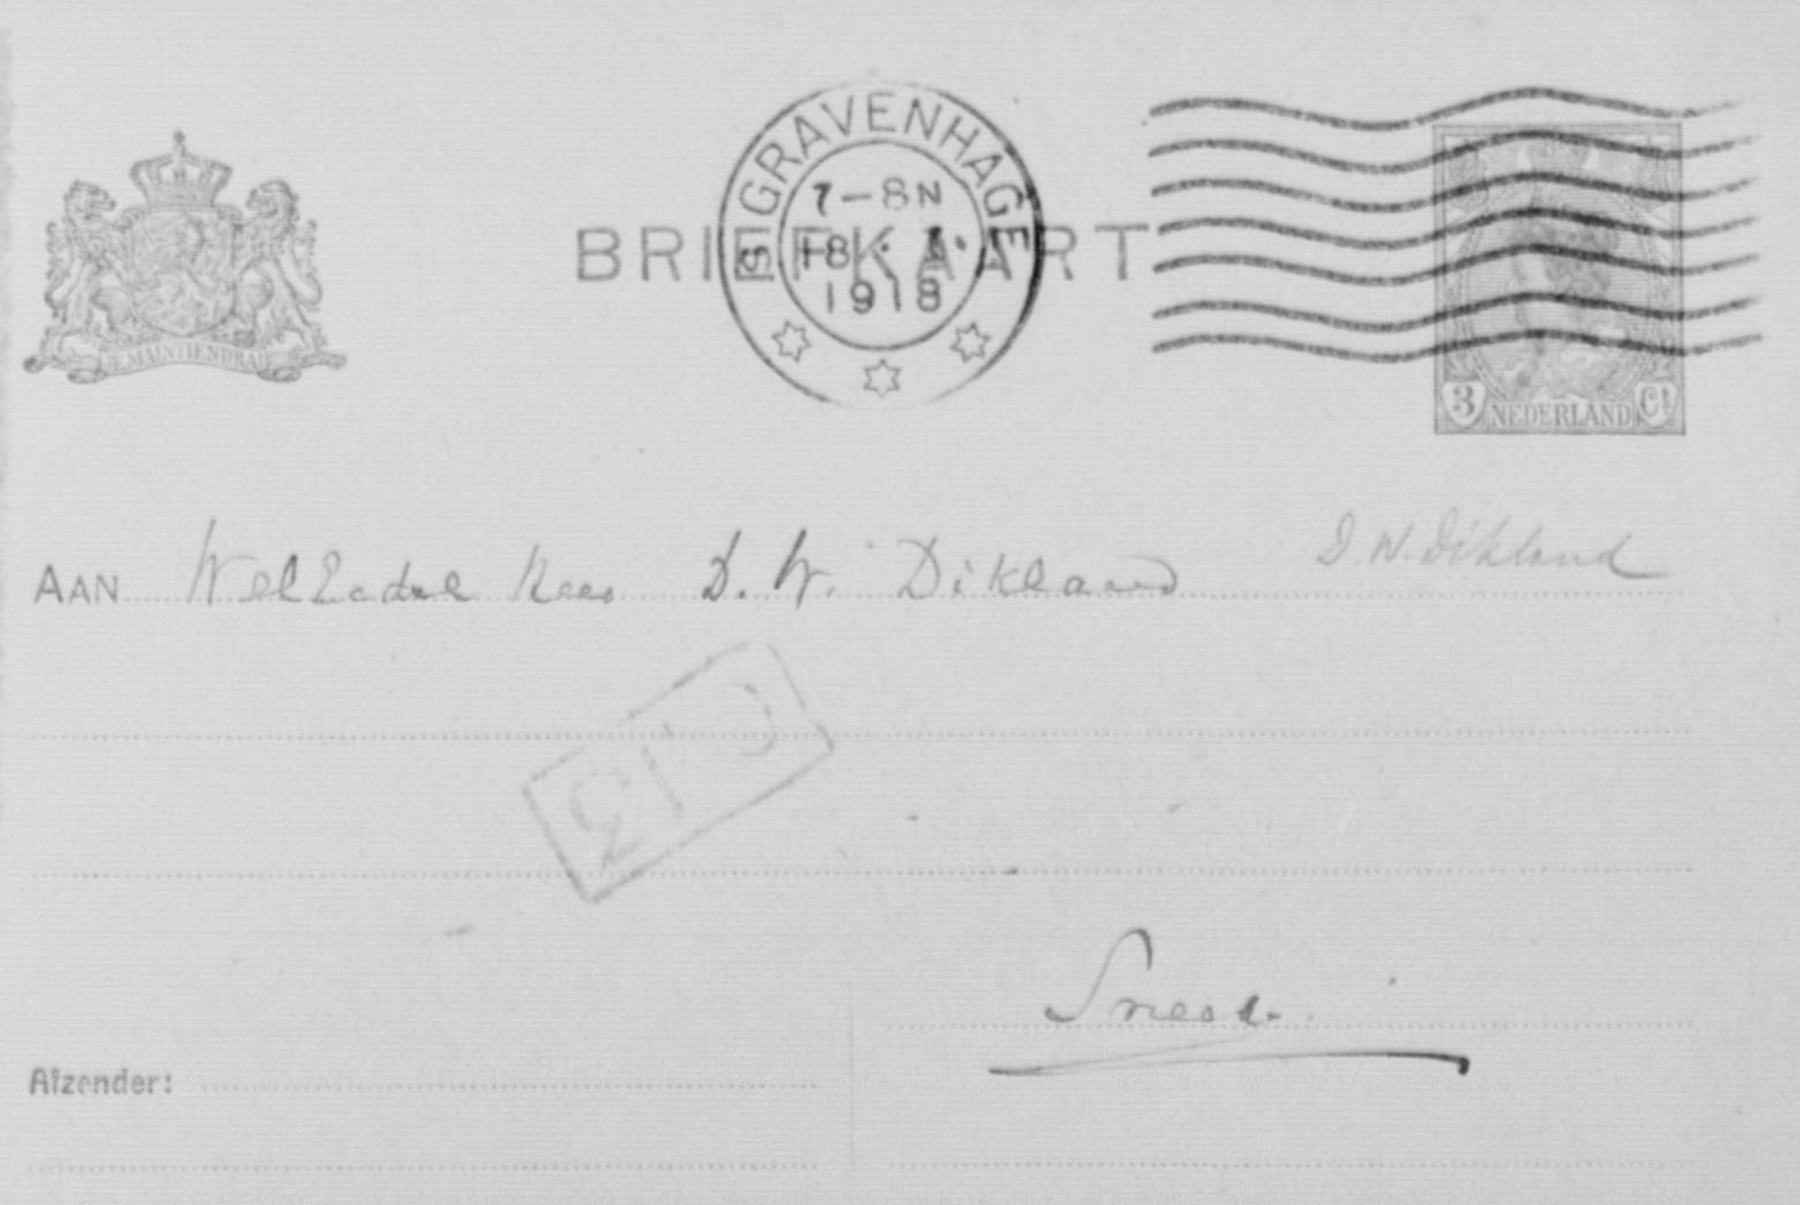 'S GRAVENHAGE
7-8N
18. 1.
1918
BRIEFKAART
JE MAINTIENDRAI
3 Ct
NEDERLAND
AAN WelEdele Heer D. W. Dikland D. W. Dikland
Sneek.
Afzender: